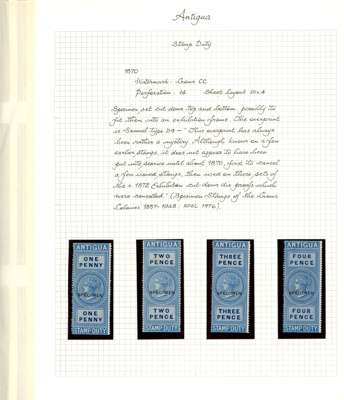 Antigua
Stamp Duty
1870
Watermark - Crown CC
Perforation 14 Sheet Layout 10x4
Specimen set cut down top and bottom possibly to
fit them into an exhibition frame. The overprint
is Samuel Type D9 - "This overprint has always
been rather a mystery. Although known on a few
earlier stamps, it does not appear to have been
put into service until about 1870, first to cancel
a few issued stamps, then used on those sets of
the 1872 Exhibition cut down die proofs which
were cancelled." (Specimen Stamps of the Crown
Colonies 1857- Samuel, RPSL 1976)
ANTIGUA ANTIGUA ANTIGUA ANTIGUA
ONE PENNY TWO PENCE THREE PENCE FOUR PENCE
SPECIMEN SPECIMEN SPECIMEN SPECIMEN
ONE PENNY TWO PENCE THREE PENCE FOUR PENCE
STAMP DUTY STAMP DUTY STAMP DUTY STAMP DUTY